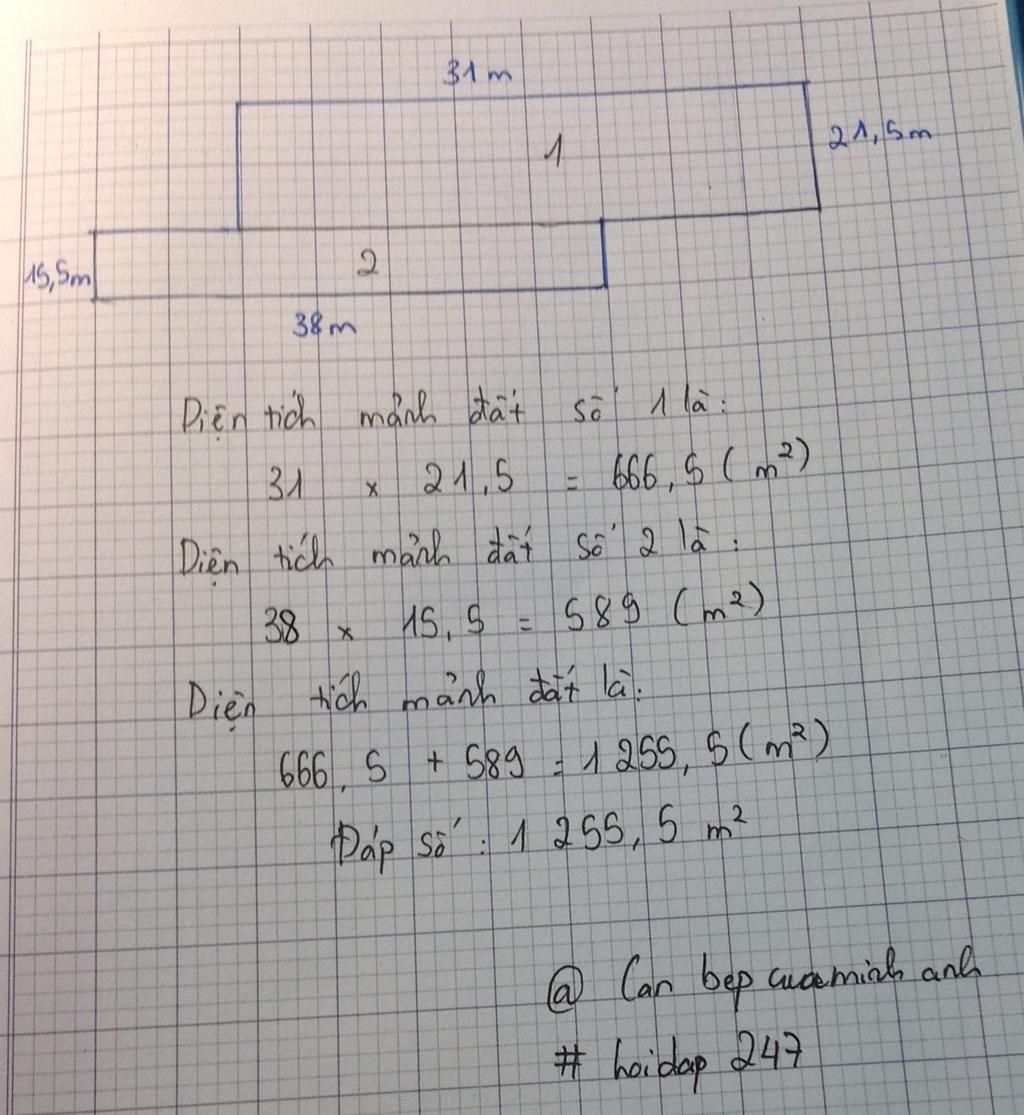 31 m
1
21,5m
15,5m
2
38 m
Diện tích mảnh đất số 1 là:
31 x 21,5 = 666,5 (m²)
Diện tích mảnh đất số 2 là:
38 x 15,5 = 589 (m²)
Diện tích mảnh đất là:
666,5 + 589 = 1 255,5 (m²)
Đáp số: 1 255,5 m²
@ Can bep cuaminh anh
# hoidap 247